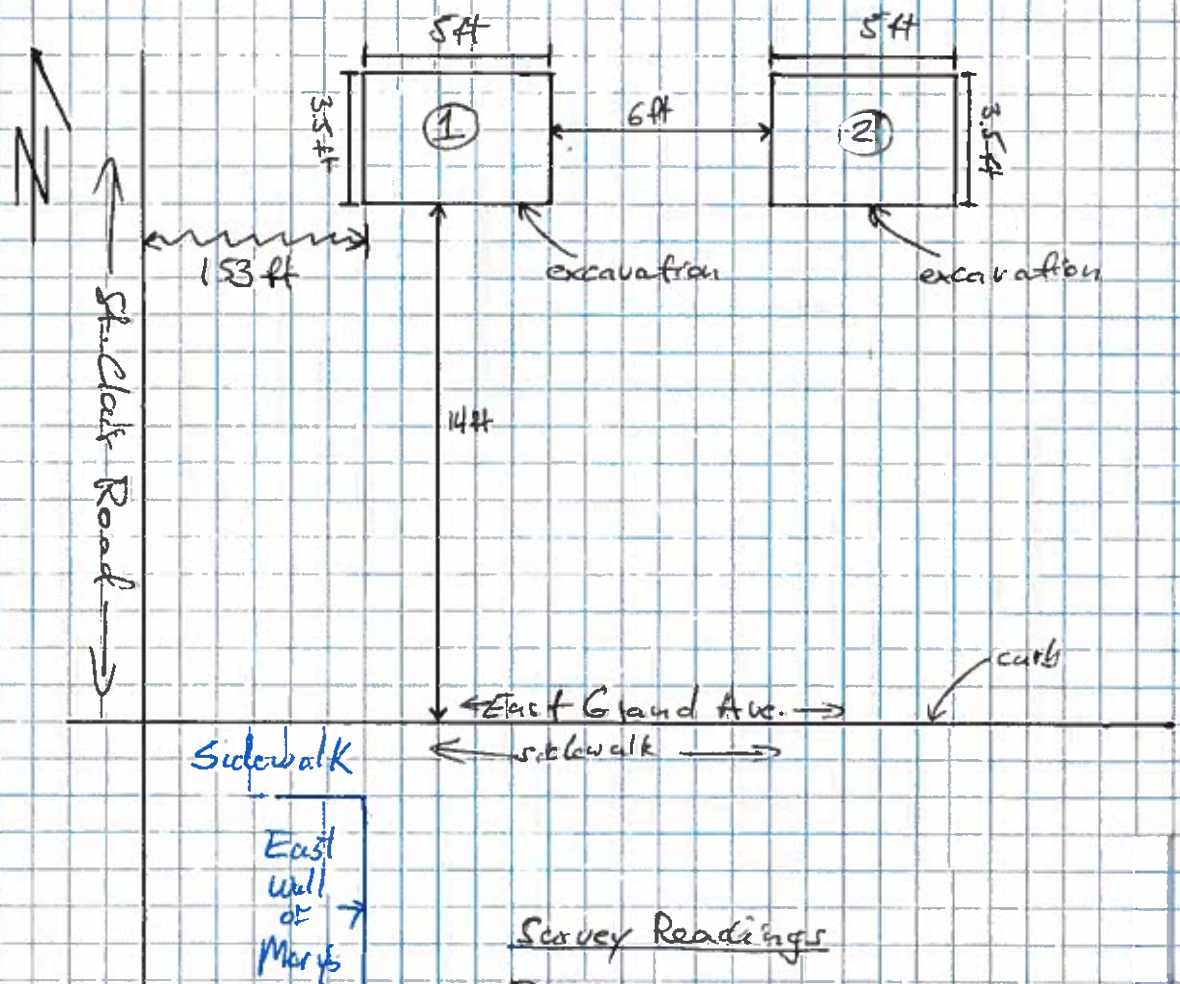 5 ft
5 ft
N
3.5 ft
1
6 ft
2
3.5 ft
153 ft
excavation
excavation
St. Clair Road
14 ft
curb
East Grand Ave.
sidewalk
Sidewalk
East
Wall
of
Mary's
Survey Readings